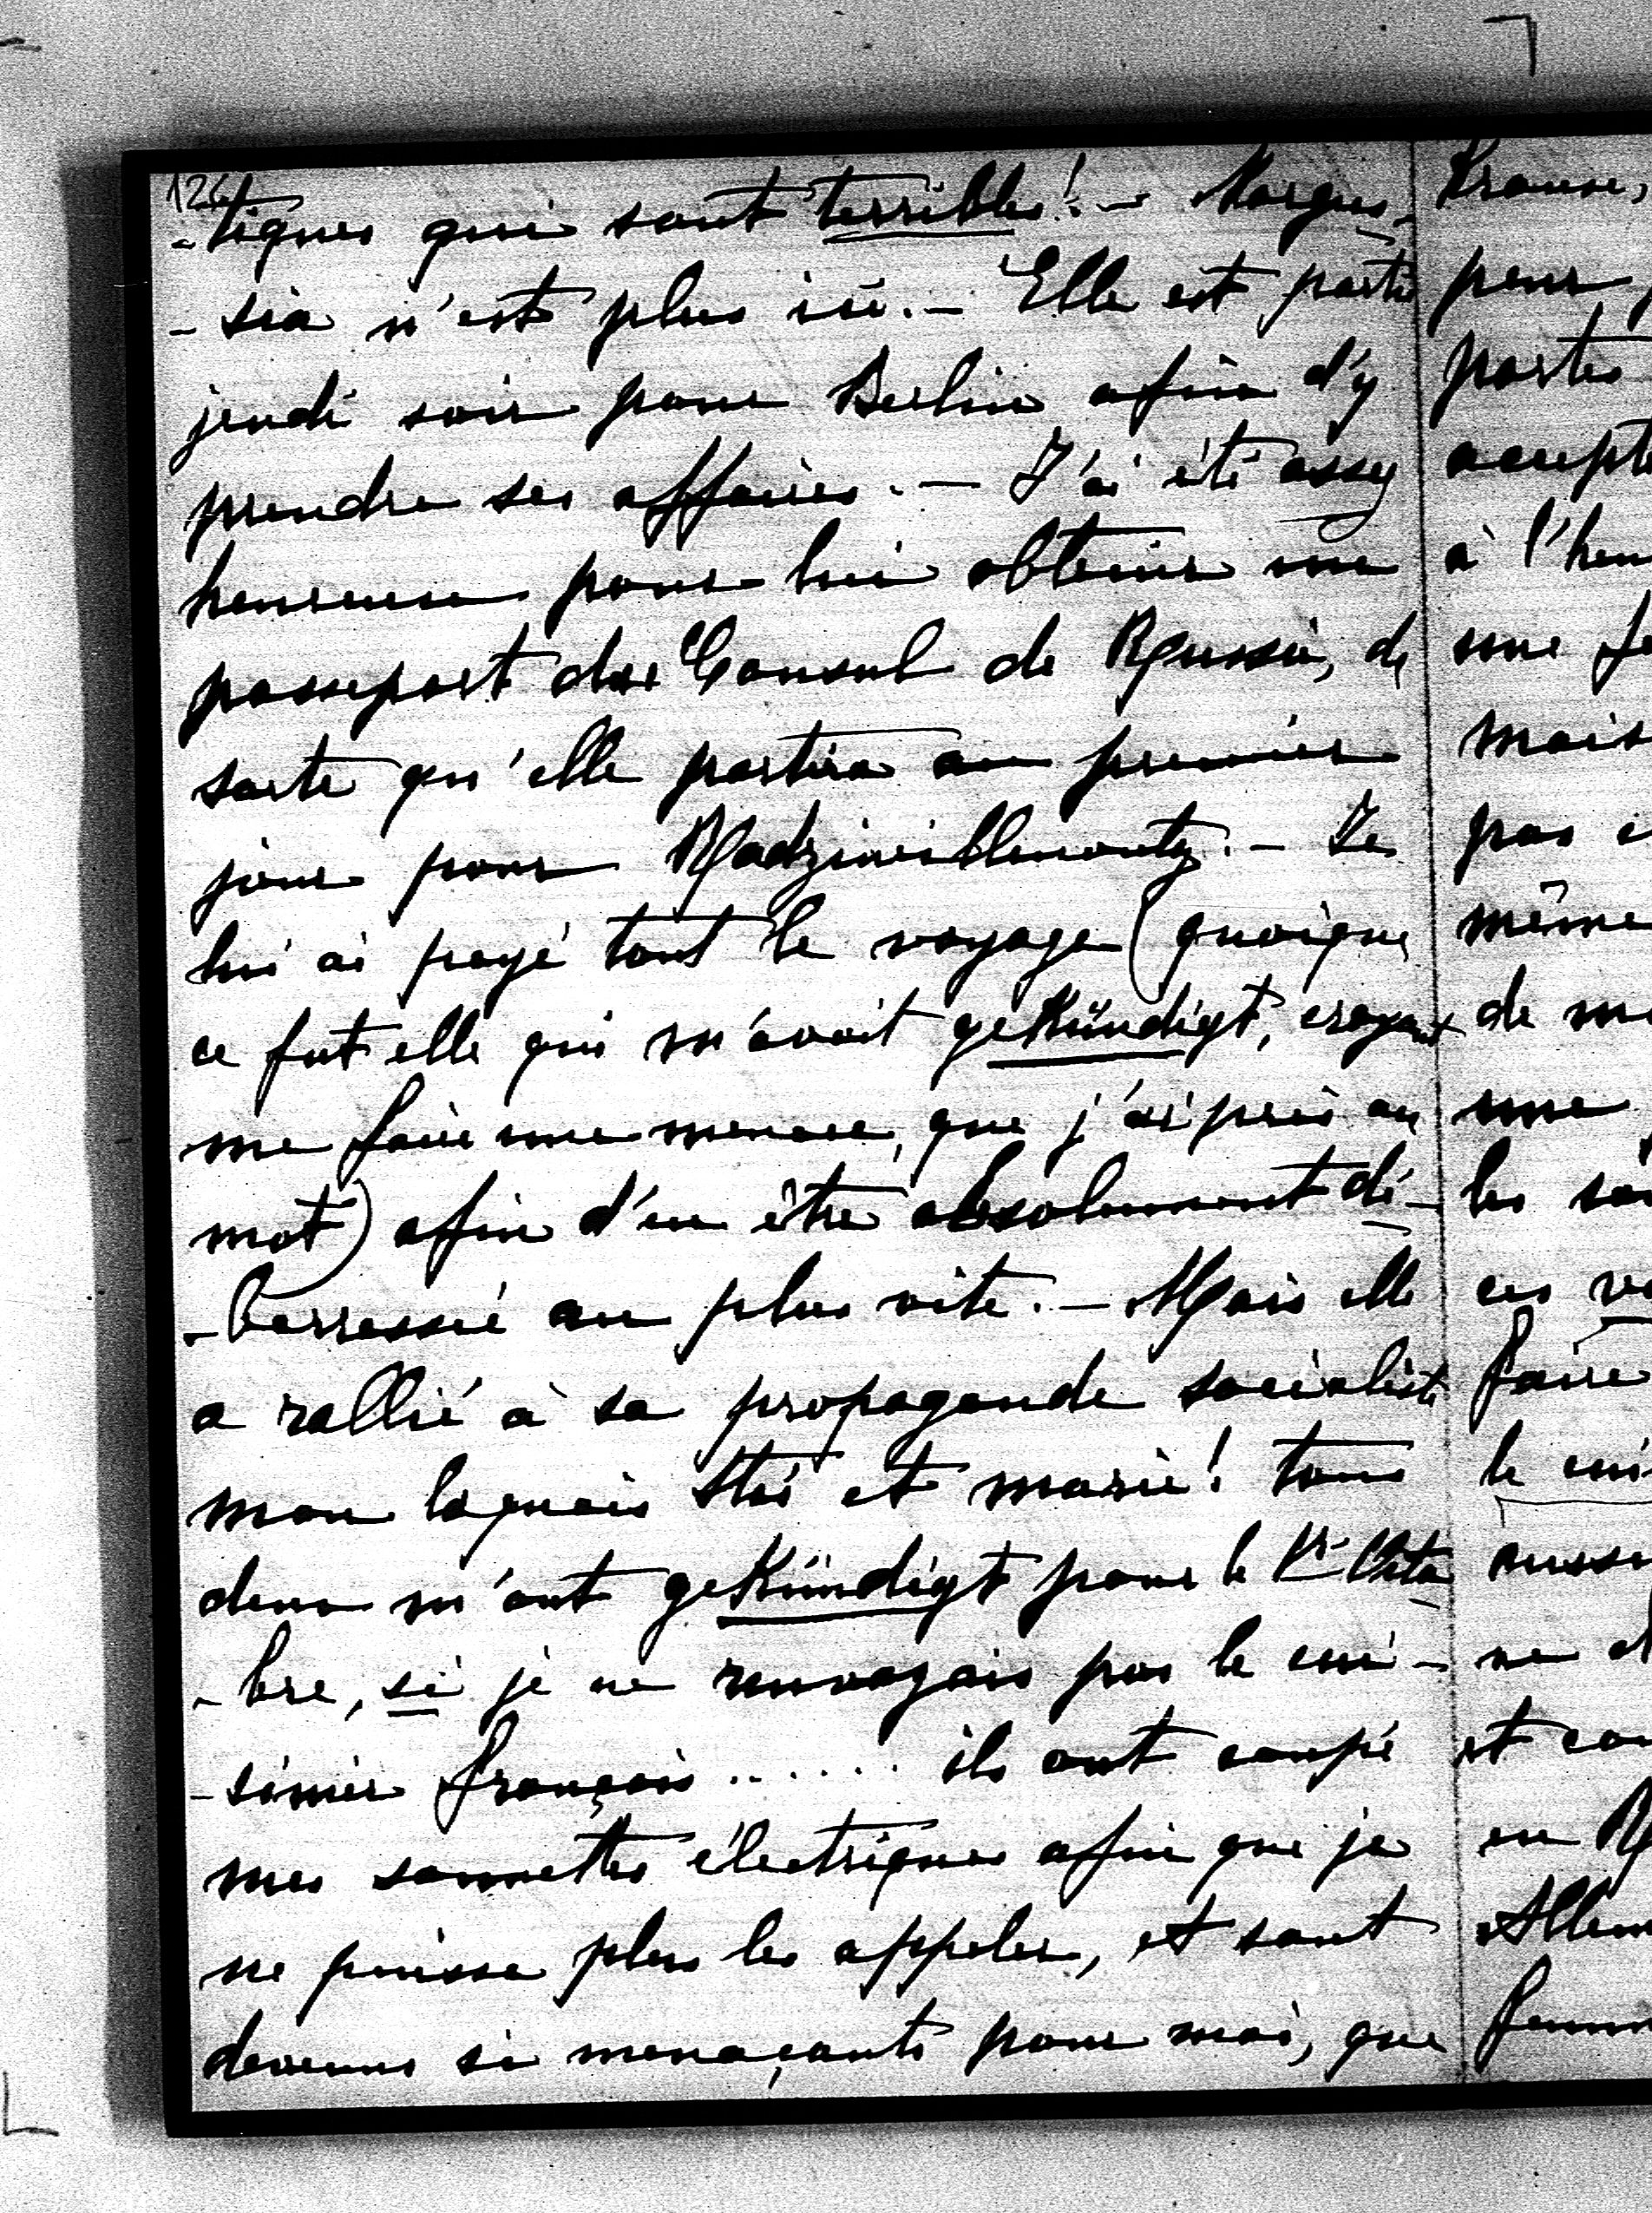 124
-tiques qui sont terribles! - Margus-
-sia n'est plus ici. - Elle est partie
jeudi soir pour Berlin afin d'y
prendre ses affaires. - J'ai été assez
heureuse pour lui obtenir un
passeport du Consul de Russie, de
sorte qu'elle partira au premier
jour pour Radziwillmonty. - Je
lui ai payé tout le voyage (quoique
ce fut elle qui m'avait gekündigt, croyant
me faire une menace, que j'ai pris au
mot) afin d'en être absolument dé-
-barrassé au plus vite. - Mais elle
a rallié à sa propagande socialiste
mon laquais et Marie! tous
deux m'ont gekündigt pour le 1r Octo
-bre, si je ne renvoyais pas le cui-
-sinier français ...... ils ont coupé
mes sonnettes électriques afin que je
ne puisse plus les appeler, et sont
devenus si menaçants pour moi, que
peur
portes
à l'heu
une
mais
pas
même
de
une
les
ces
faire
le cui
aussi
ne
et
en
Allem
femm